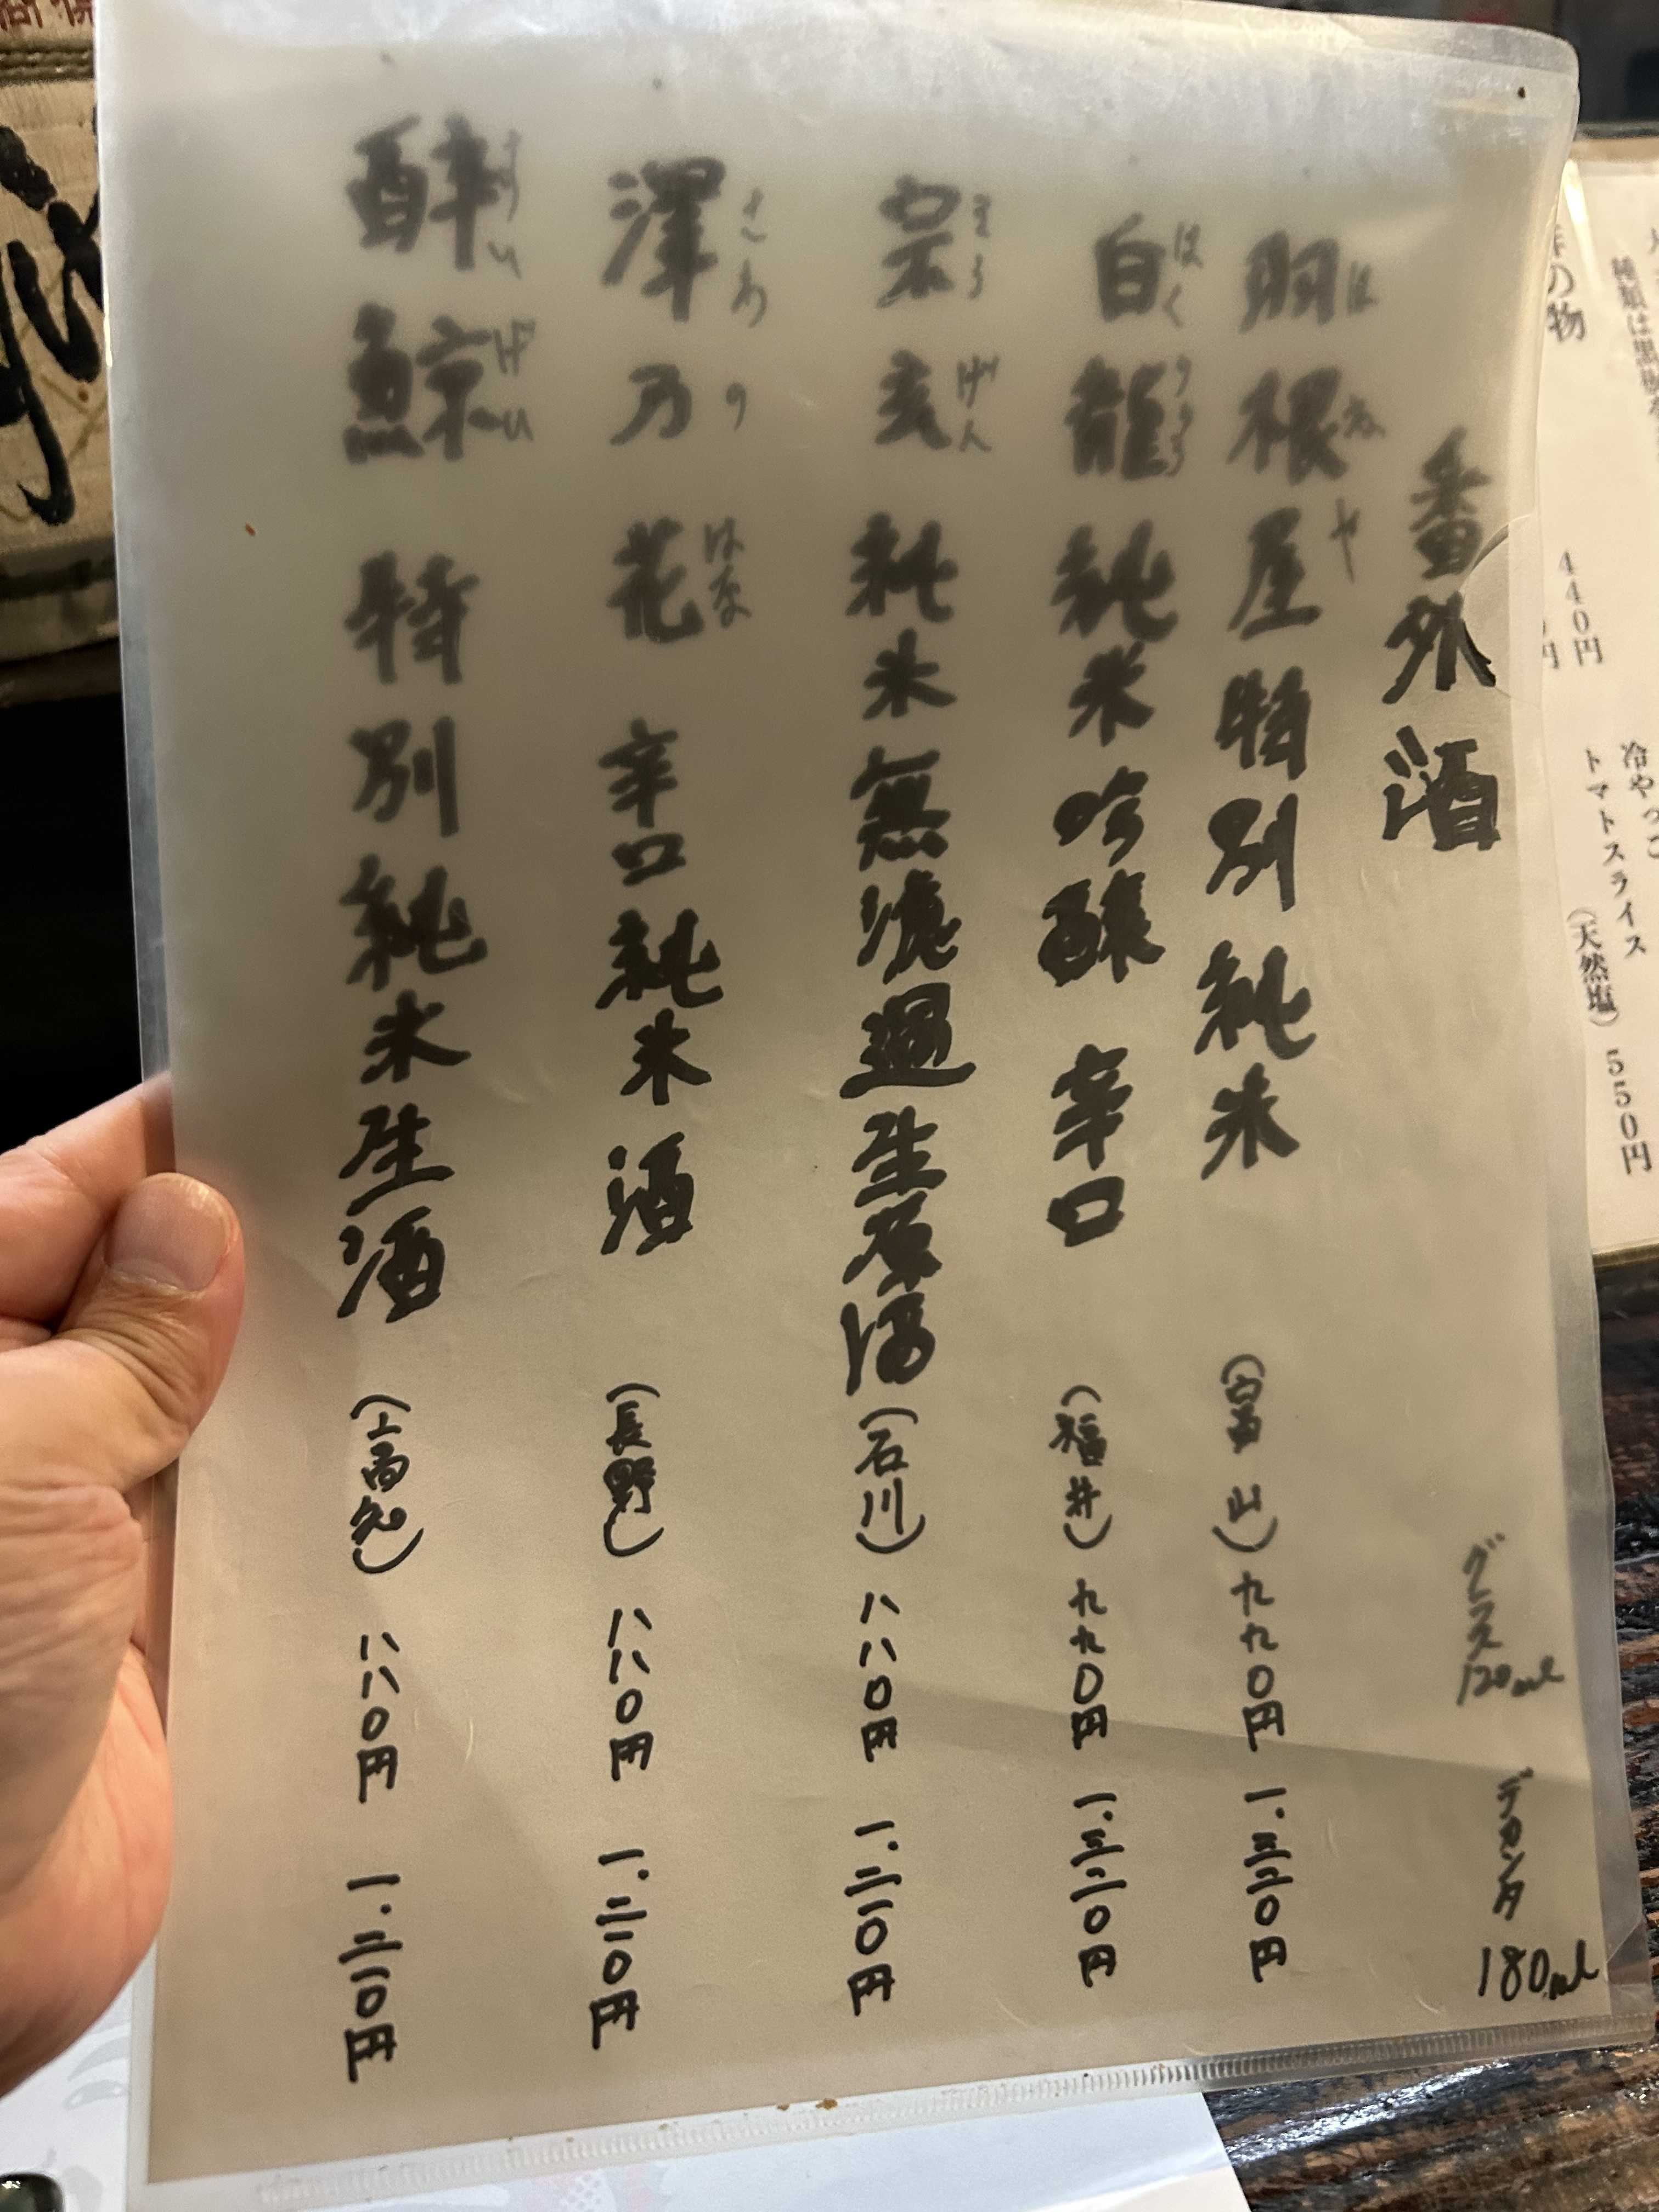 番外酒
グラス120ml デカンタ180ml
羽根屋 特別純米 (富山) 九九〇円 一.三二〇円
はねや
白龍 純米吟醸 辛口 (福井) 九九〇円 一.三二〇円
はくりゅう
宗玄 純米無濾過生原酒 (石川) 八八〇円 一.二一〇円
そうげん
澤乃花 辛口純米酒 (長野) 八八〇円 一.二一〇円
さわのはな
酔鯨 特別純米生酒 (高知) 八八〇円 一.二一〇円
すいげい
の物
440円
冷やっこ
トマトスライス
(天然塩) 550円